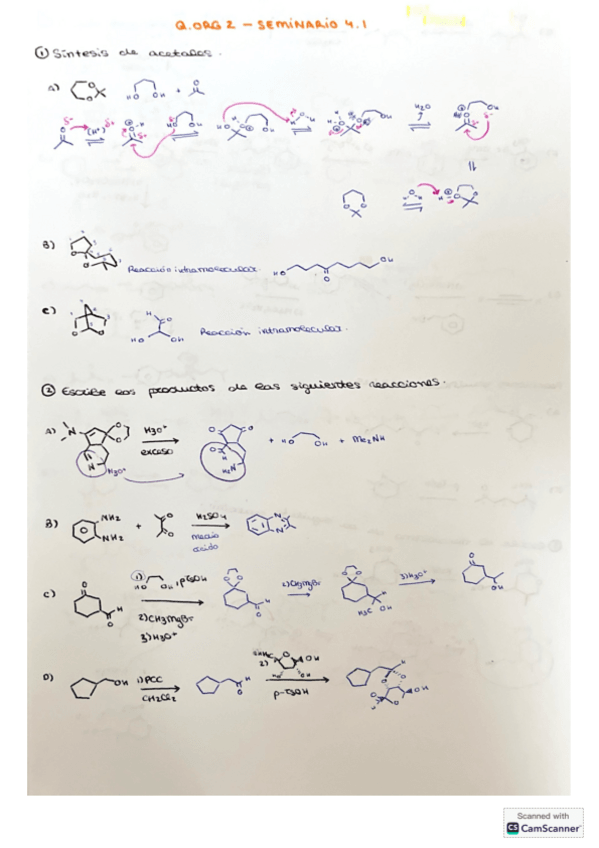 Q.ORG 2 - SEMINARIO 4.1
① Síntesis de acetales.
A) HO OH +
H2O
B) Reacción intramolecular. HO O OH
C) H O HO OH Reacción intramolecular.
② Escribe los productos de las siguientes reacciones.
A) H3O+ exceso + HO OH + Me2NH
H3O+ H2N
B) NH2 NH2 + H2SO4 medio ácido
C) 1) HO OH, pTSOH 2) CH3MgBr 3) H3O+
2) CH3MgBr 3) H3O+
H3C OH
D) OH 1) PCC CH2Cl2 2) p-TSOH
Scanned with
CS CamScanner